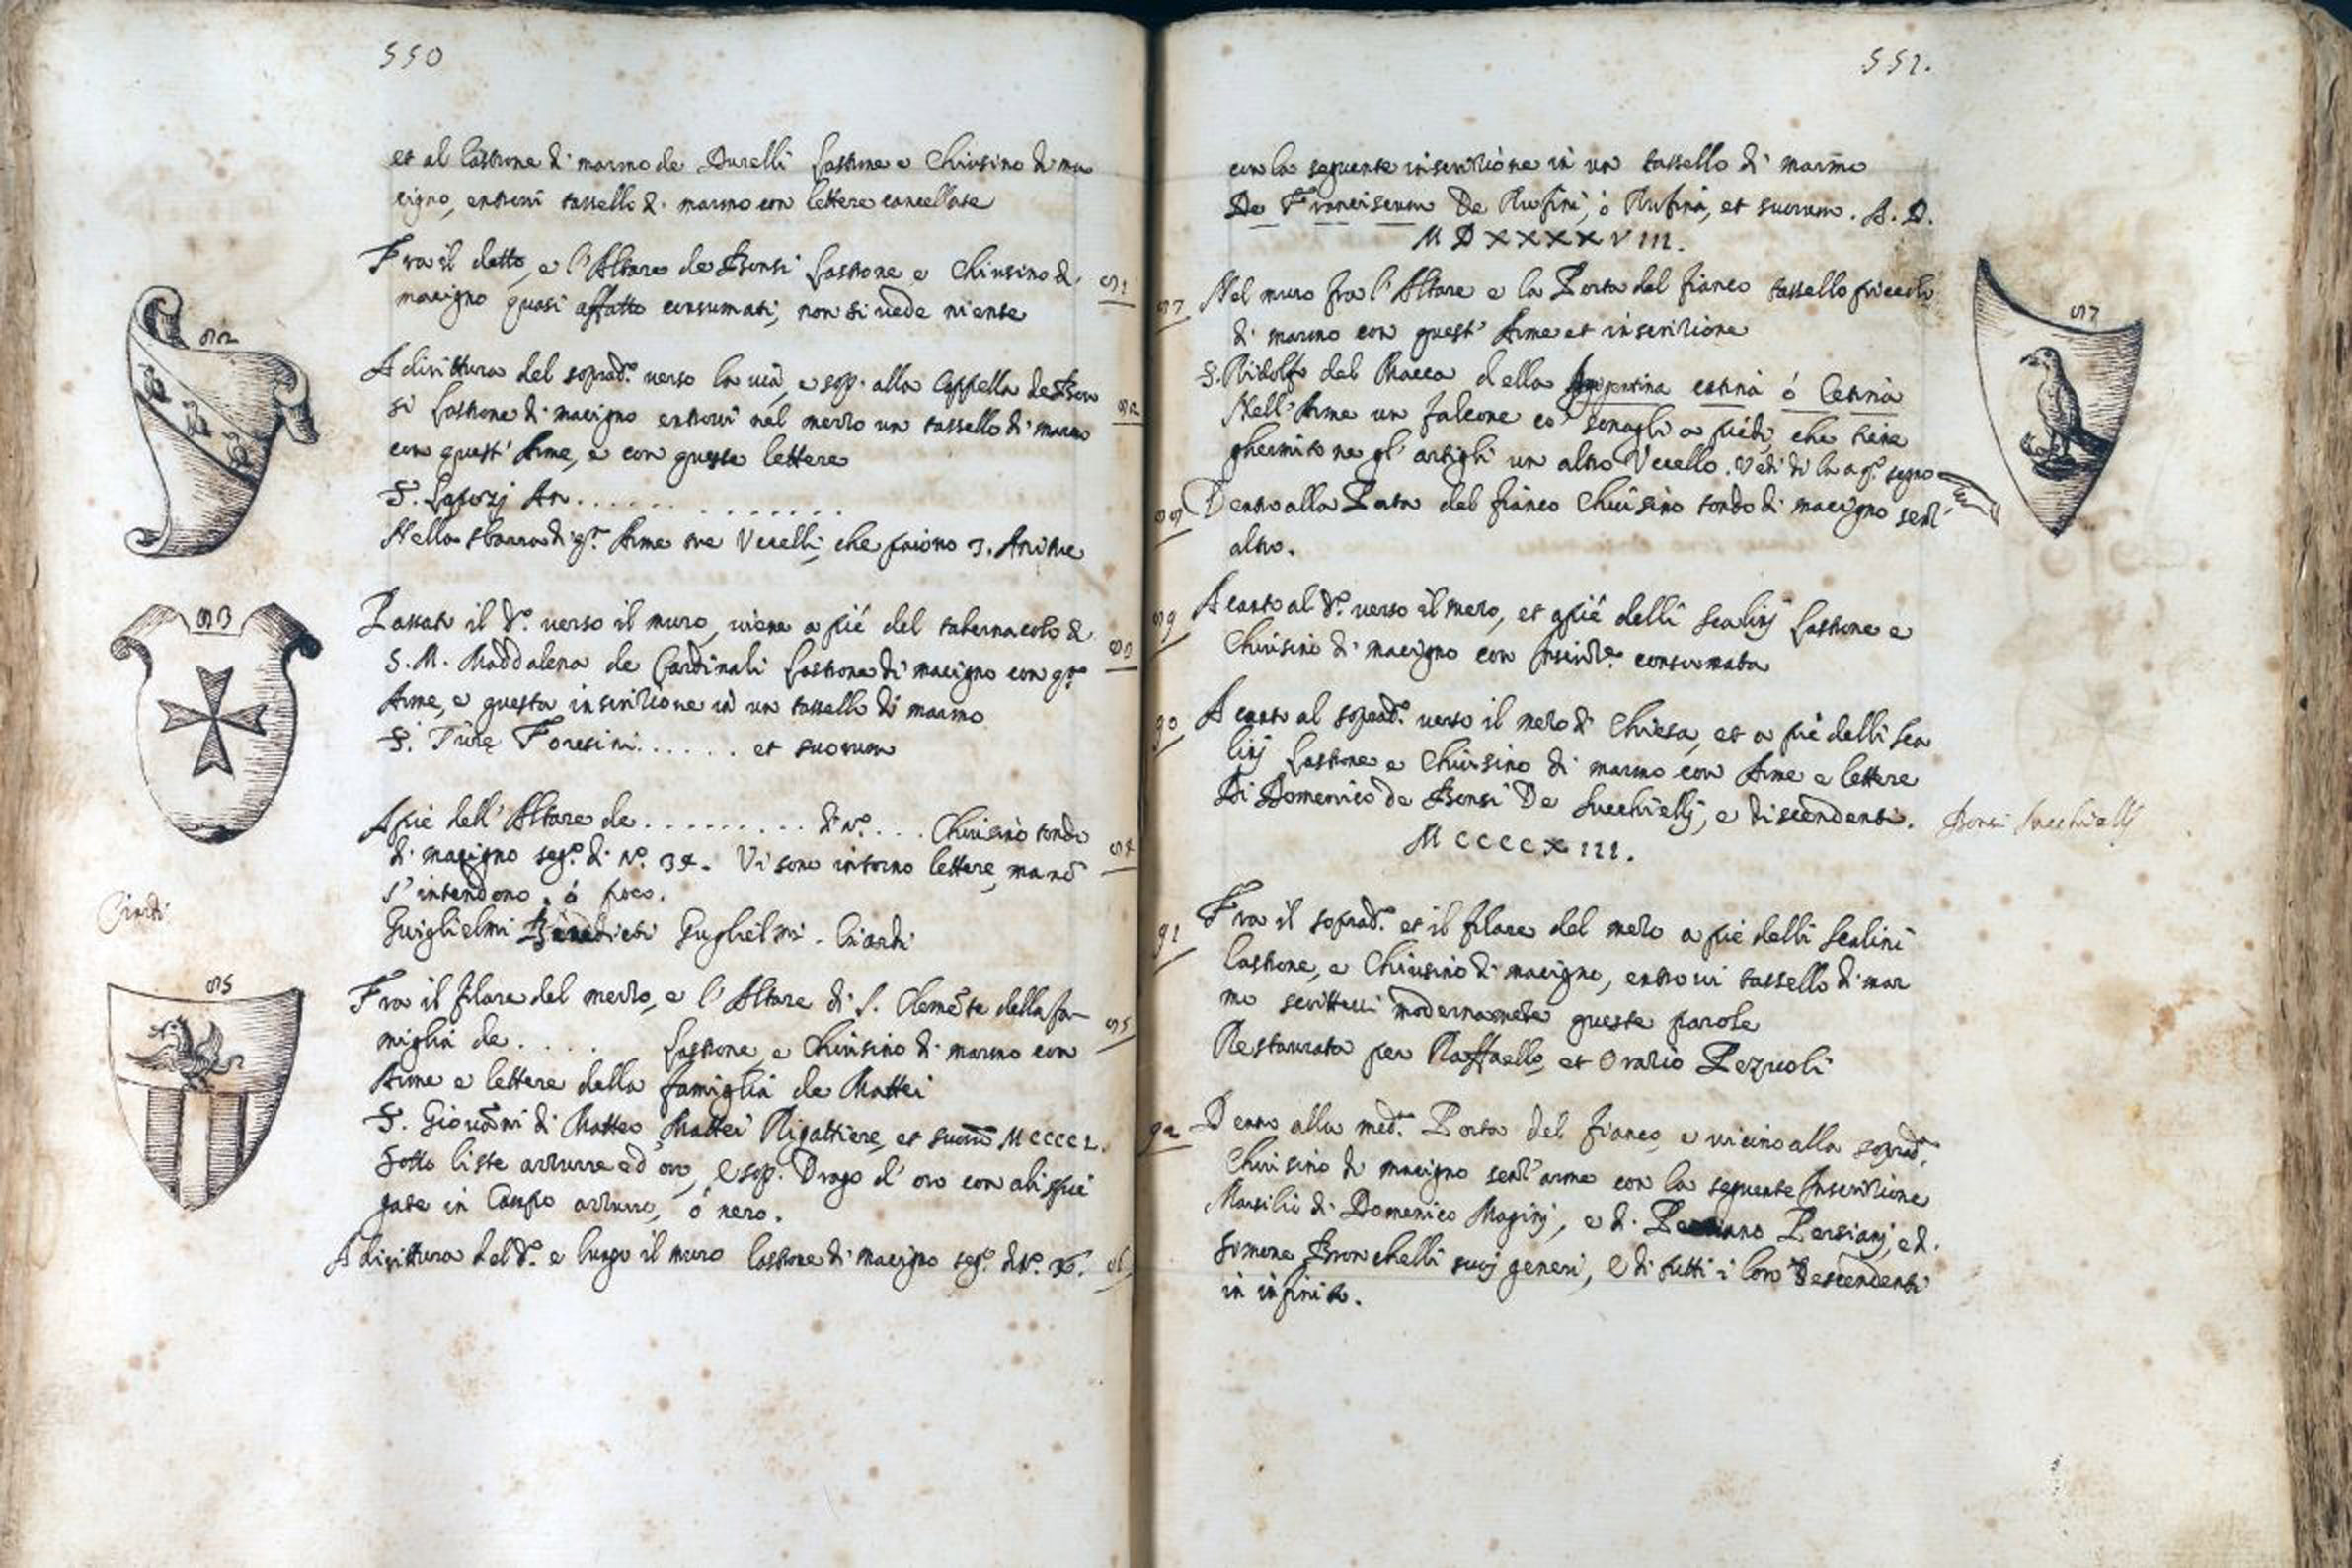 550
et al lastrone di marmo de Burelli lastrone e Chiusino di ma
cigno, entrovi tassello di marmo con lettere cancellate
Fra il detto, e l'Altare de Bonsi lastrone e Chiusino di
macigno quasi affatto consumati, non si vede niente
A dirittura del soprad.º verso la via, e sop.ª alla Cappella de Bon
si lastrone di macigno entrovi nel mezzo un tassello di marmo
con quest' Arme, e con queste lettere
S. Laporj An . . . . . . . . . . . . .
Nella sbarra di q.ta Arme tre Vccelli, che paiono 3. Anitre
82
Passato il d.º verso il muro, viene a piè del tabernacolo di
S. M. Maddalena de Cardinali lastrone di macigno con q.ta
Arme, e questa inscrizione in un tassello di marmo
S. Ture Foresini . . . . . . et suorum
83
Apiè dell' Altare de . . . . . . . . . di Nº. . . . Chiusino tondo
di macigno seg.º di Nº. 34. Vi sono intorno lettere, ma nō
s'intendono, ó poco.
Guiglielmi Benedicti Guglielmi - Ciardi
Ciardi
Fra il filare del mezzo, e l'Altare di S. Clemēte della fa-
miglia de . . . . lastrone e Chiusino di marmo con
Arme e lettere della famiglia de Mattei
S. Giovāni di Matteo Mattei Rigattiere, et suorū MCCCCL.
Sotto liste azzurre ed oro, e sop.ª Drago d'oro con ali spie
gate in Campo azzurro, ó nero.
85
A dirittura del d.º e lungo il muro lastrone di macigno seg.º di Nº. 36.
551.
con la seguente inscrizione in un tassello di marmo
De Franciscum De Rufini, ó Rufina, et suorum. A. D.
MDXXXXVIII.
87 Nel muro fra l'Altare e la Porta del fianco tassello piccolo
di marmo con quest' Arme et inscrizione
S. Ridolfo del Macca della cotina ó Cetina
Nell'Arme un falcone co' sonagli a piedi, che tiene
ghermito ne gl' artigli un altro Vccello. Vedi di la a q.º segno
87
Dentro alla Porta del fianco Chiusino tondo di macigno senz'
altro.
89 Acanto al d.º verso il mezo, et apiè delli scalinj lastrone e
Chiusino di macigno con Inscriz.e consumata
90 Acanto al soprad.º verso il mezo di Chiesa, et a piè delli sca
linj lastrone e Chiusino di marmo con Arme e lettere
Di Domenico de Bonsi De Succhiellj, e discendenti.
Bonsi Succhiellj
MCCCCXIII.
91 Fra il soprad.º et il filare del mezo a piè delli scalini
lastrone, e Chiusino di macigno, entrovi tassello di mar
mo scrittovi modernamēte queste parole
Restaurata per Raffaello et Orazio Pezuoli
92 Dentro alla med.ª Porta del fianco, e vicino alla soprad.ª
Chiusino di macigno senz'arme con la seguente Inscrizione
Marsilii di Domenico Maginj, e di Persianj, e di
Simone Bronchelli suoj generi, e di tutti i loro Descendenti
in infinito.